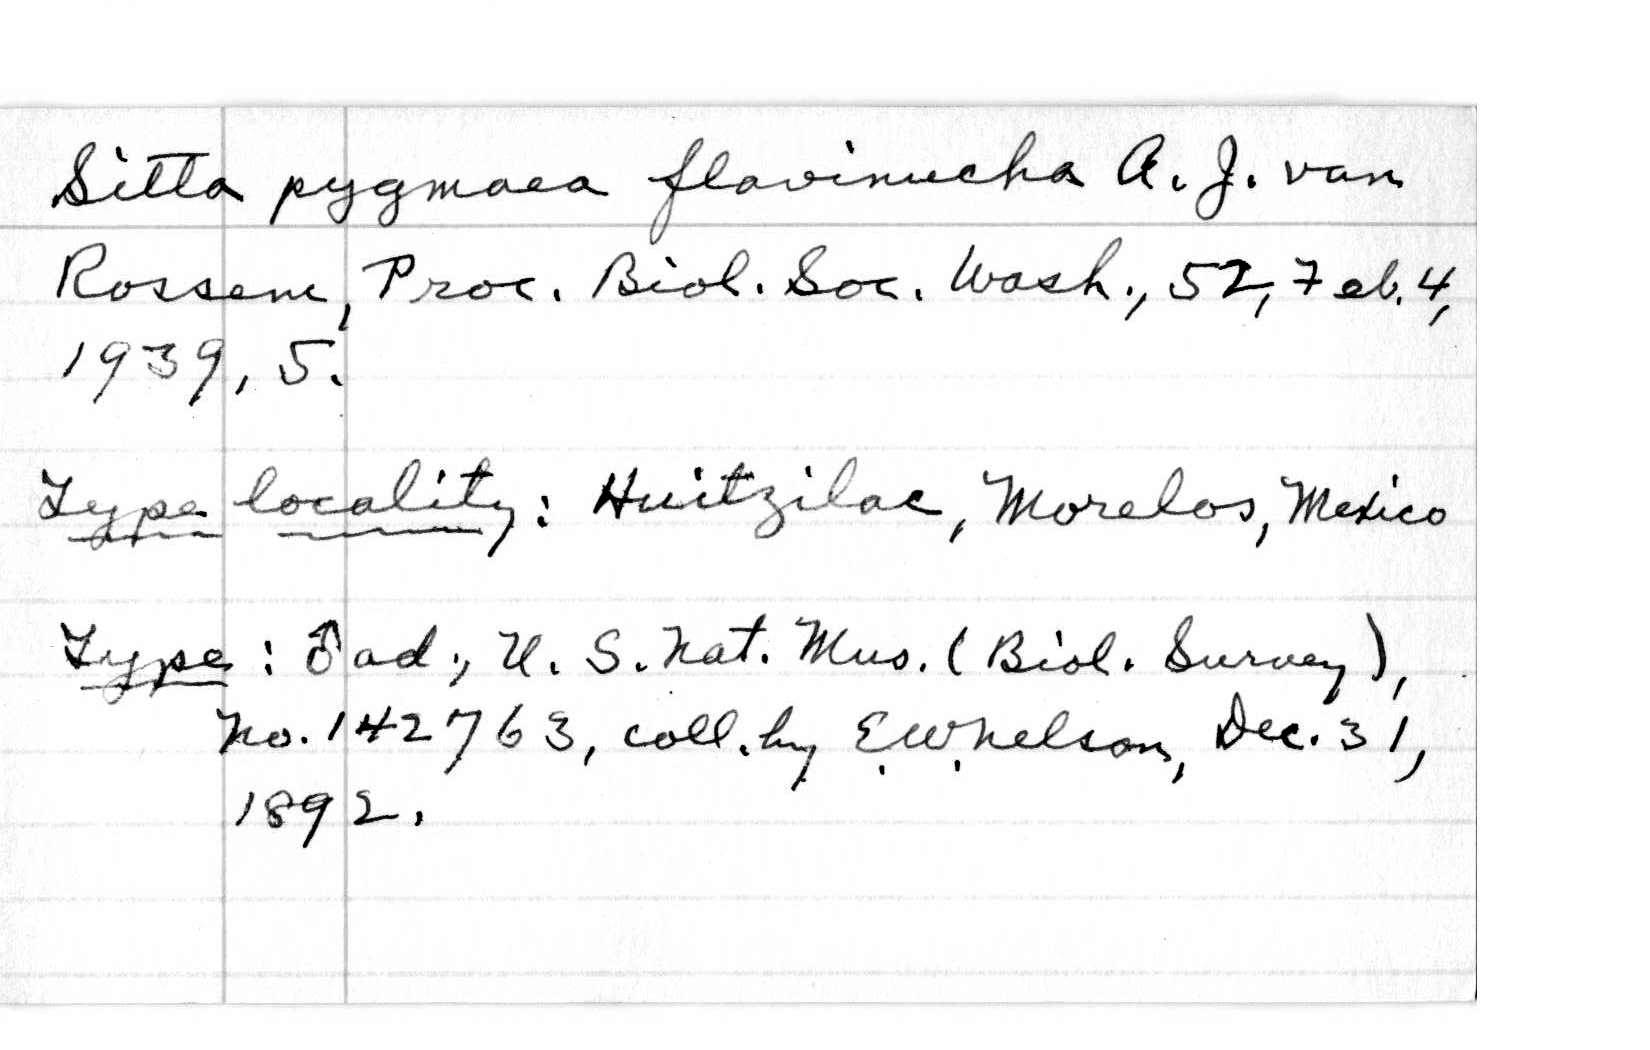 Sitta pygmaea flavinucha A. J. van
Rossem, Proc. Biol. Soc. Wash., 52, Feb. 4,
1939, 5.
Type locality: Huitzilac, Morelos, Mexico
Type: ♂ ad., U. S. Nat. Mus. (Biol. Survey),
No. 142763, coll. by E. W. Nelson, Dec. 31,
1892.